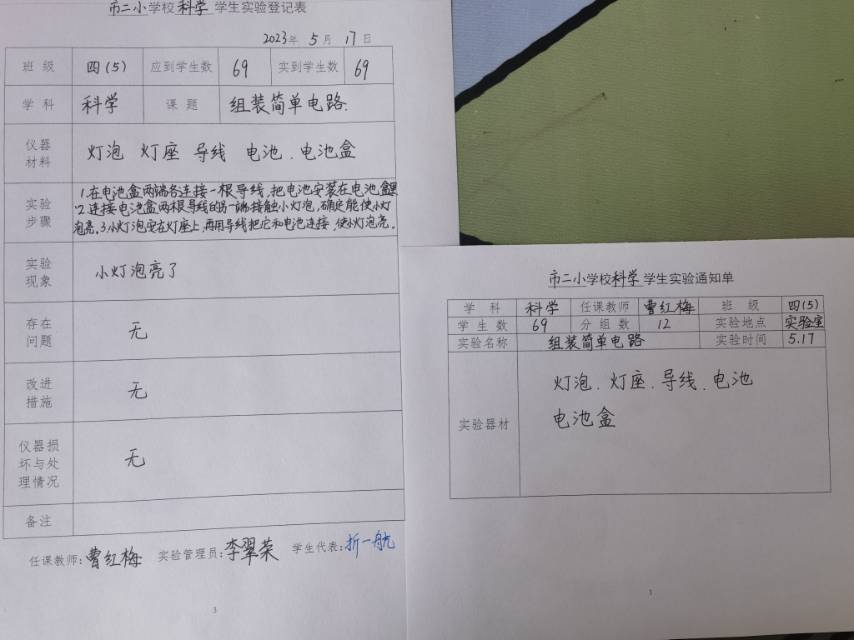 市二小学校科学学生实验登记表
2023年5月17日
班级 四(5) 应到学生数 69 实到学生数 69
学科 科学 课题 组装简单电路.
仪器材料 灯泡 灯座 导线 电池、电池盒
实验步骤
1.在电池盒两端各连接一根导线,把电池安装在电池盒里
2.连接电池盒两根导线的另一端接触小灯泡,确定能使小灯
泡亮.3.小灯泡安在灯座上,再用导线把它和电池连接,使小灯泡亮。
实验现象 小灯泡亮了
存在问题 无
改进措施 无
仪器损坏与处理情况 无
备注
任课教师:曹红梅 实验管理员:李翠荣 学生代表:折一航
3
市二小学校科学学生实验通知单
学科 科学 任课教师 曹红梅 班级 四(5)
学生数 69 分组数 12 实验地点 实验室
实验名称 组装简单电路 实验时间 5.17
实验器材
灯泡、灯座、导线、电池
电池盒
1